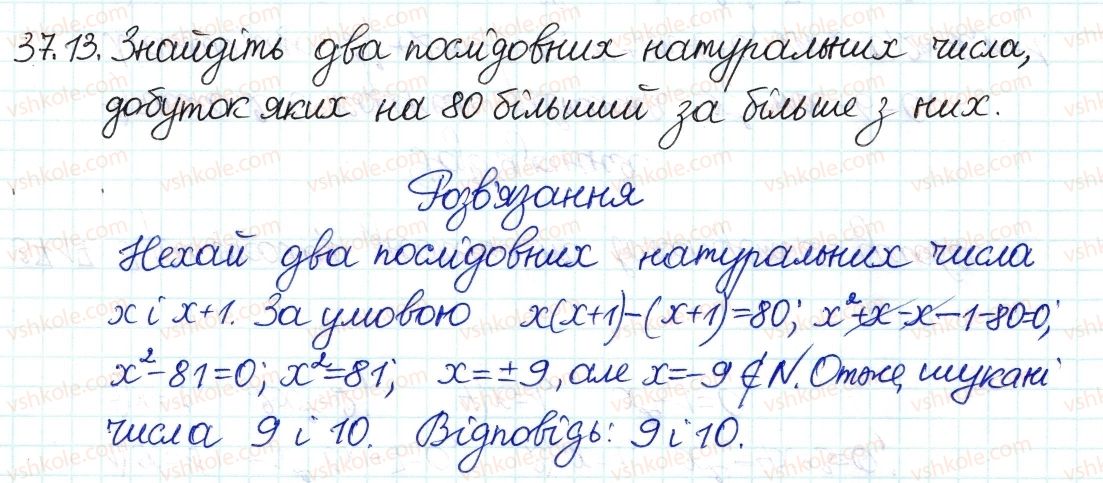 37.13. Знайдіть два послідовних натуральних числа,
добуток яких на 80 більший за більше з них.
Розв'язання
Нехай два послідовних натуральних числа
x і x+1. За умовою x(x+1)-(x+1)=80; x²+x-x-1-80=0;
x²-81=0; x²=81; x=±9, але x=-9 ∉ N. Отже, шукані
числа 9 і 10. Відповідь: 9 і 10.